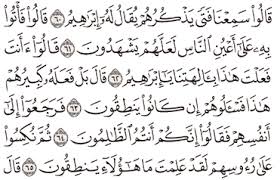 قَالُوا۟ سَمِعْنَا فَتًى يَذْكُرُهُمْ يُقَالُ لَهُۥٓ إِبْرَٰهِيمُ ٦٠ قَالُوا۟ فَأْتُوا۟
بِهِۦ عَلَىٰٓ أَعْيُنِ ٱلنَّاسِ لَعَلَّهُمْ يَشْهَدُونَ ٦١ قَالُوٓا۟ ءَأَنتَ
فَعَلْتَ هَٰذَا بِـَٔالِهَتِنَا يَٰٓإِبْرَٰهِيمُ ٦٢ قَالَ بَلْ فَعَلَهُۥ كَبِيرُهُمْ
هَٰذَا فَسْـَٔلُوهُمْ إِن كَانُوا۟ يَنطِقُونَ ٦٣ فَرَجَعُوٓا۟ إِلَىٰٓ
أَنفُسِهِمْ فَقَالُوٓا۟ إِنَّكُمْ أَنتُمُ ٱلظَّٰلِمُونَ ٦٤ ثُمَّ نُكِسُوا۟
عَلَىٰ رُءُوسِهِمْ لَقَدْ عَلِمْتَ مَا هَٰٓؤُلَآءِ يَنطِقُونَ ٦٥ قَالَ